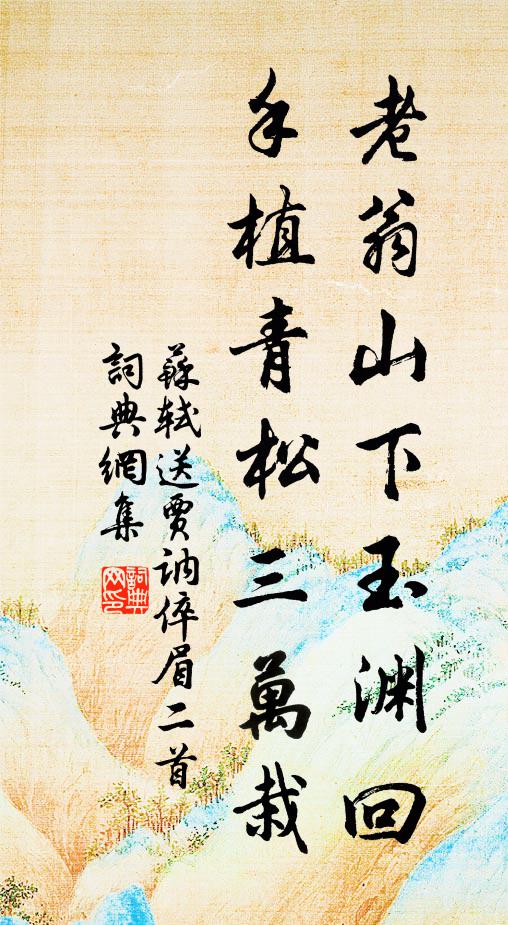 老翁山下玉渊回
手植青松三萬栽
蘇軾送賈訥倅眉二首
詞典網集
詞典網印